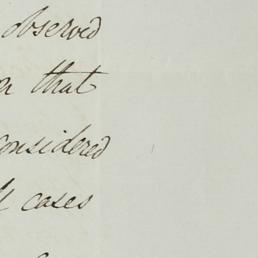 observed
on that
considered
ll cases